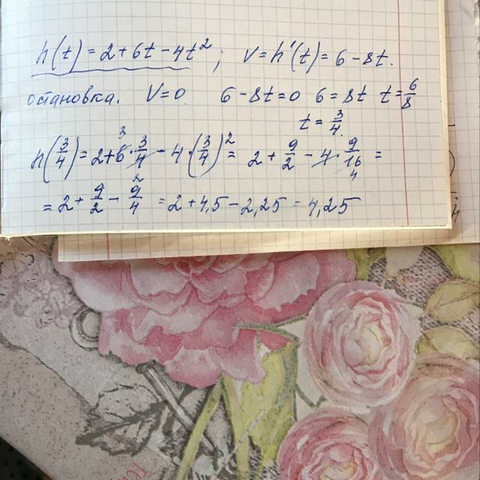 h(t) = 2 + 6t - 4t²; v = h'(t) = 6 - 8t.
остановка. V = 0 6 - 8t = 0 6 = 8t t = 6/8
t = 3/4.
h(3/4) = 2 + 6 · 3/4 - 4 · (3/4)² = 2 + 9/2 - 4 · 9/16 =
= 2 + 9/2 - 9/4 = 2 + 4,5 - 2,25 = 4,25